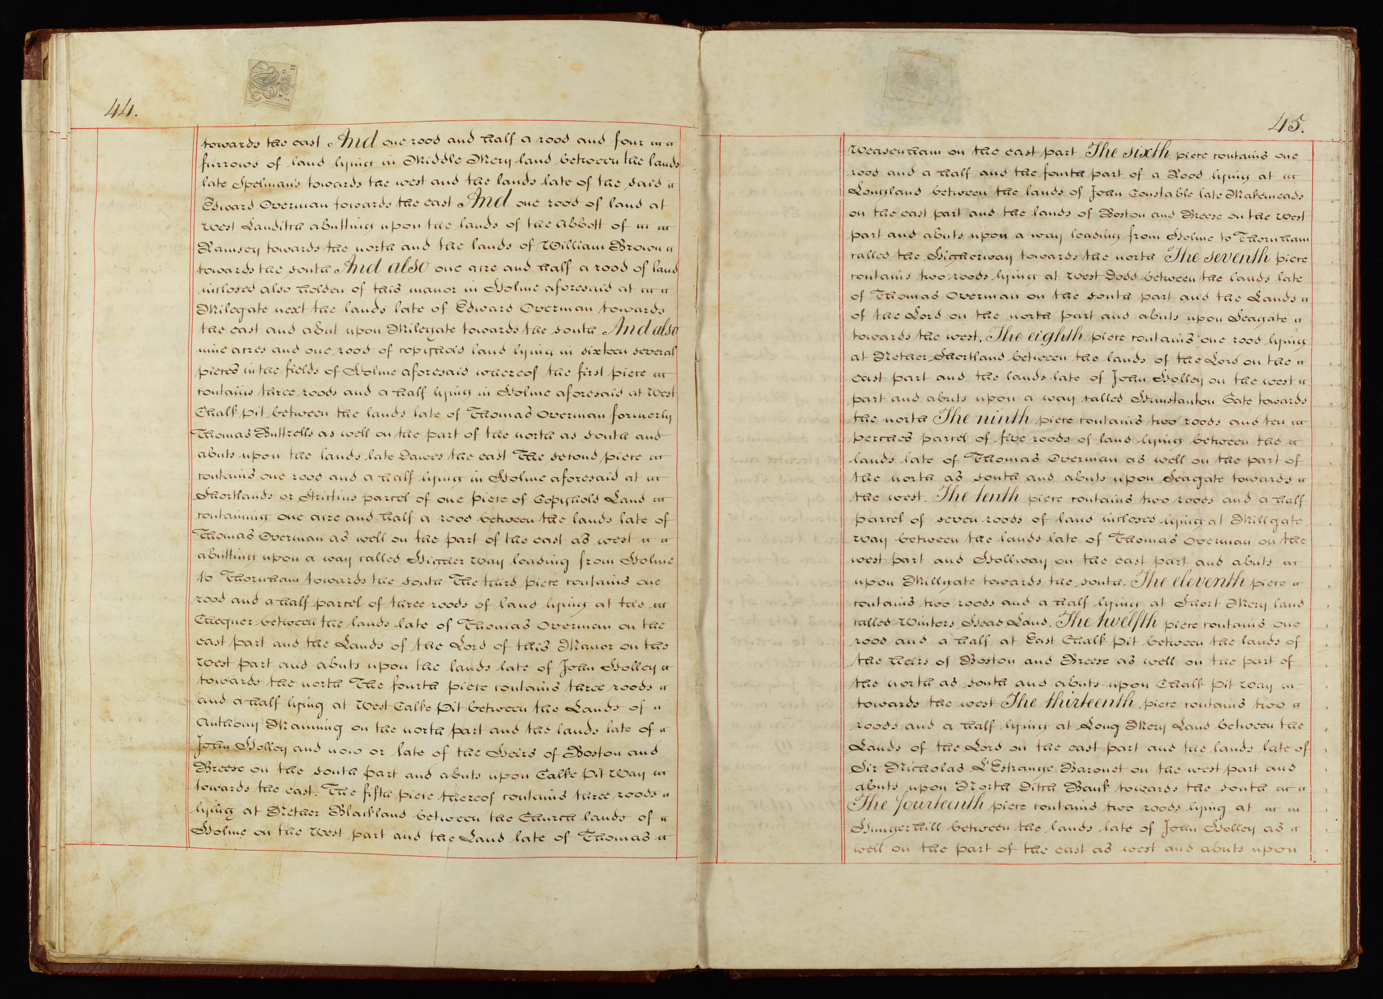 44.
towards the east And one rood and half a rood and four
furrows of land lying in Middle Mery land between the lands
late Spelman's towards the west and the lands late of the said
Edward Overman towards the east And one rood of land at
West Landitch abutting upon the lands of the Abbott of
Ramsey towards the north and the lands of William Brown
towards the south And also one acre and half a rood of land
inclosed also holden of this manor in Holme aforesaid at
Milegate next the lands late of Edward Overman towards
the east and abut upon Milegate towards the south And also
nine acres and one rood of copyhold land lying in sixteen several
pieces in the fields of Holme aforesaid whereof the first piece
contains three roods and a half lying in Holme aforesaid at West
Chalk Pit between the lands late of Thomas Overman formerly
Thomas Buttrells as well on the part of the north as south and
abuts upon the lands late Dawes the east The second piece
contains one rood and a half lying in Holme aforesaid at
Shortlands or parcel of one piece of Copyhold Land
containing one acre and half a rood between the lands late of
Thomas Overman as well on the part of the east as west
abutting upon a way called Higher Way leading from Holme
to Thornham towards the south The third piece contains one
rood and a half parcel of three roods of land lying at the
Chequer between the lands late of Thomas Overman on the
east part and the Lands of the Lord of this Manor on the
West part and abuts upon the lands late of John Holley
towards the north The fourth piece contains three roods
and a half lying at West Calke Pit between the Lands of
Anthony Manning on the north part and the lands late of
John Holley and now or late of the Heirs of Boston and
Breese on the south part and abuts upon Calke Pit Way
towards the east. The fifth piece thereof contains three roods
lying at Nether Blackland between the Church lands of
Holme on the West part and the Land late of Thomas
45.
Weasenham on the east part The sixth piece contains one
rood and a half and the fourth part of a Rood lying at
Longland between the lands of John Constable late Makemeads
on the east part and the lands of Boston and Breese on the West
part and abuts upon a way leading from Holme to Thornham
called the Higherway towards the north The seventh piece
contains two roods lying at West Dodd between the lands late
of Thomas Overman on the south part and the Lands
of the Lord on the north part and abuts upon Seagate
towards the west. The eighth piece contains one rood lying
at Nether Shortland between the lands of the Lord on the
east part and the lands late of John Holley on the west
part and abuts upon a way called Grimstanton Gate towards
the north The ninth piece contains two roods and ten
perches parcel of five roods of land lying between the
lands late of Thomas Overman as well on the part of
the north as south and abuts upon Seagate towards
the west. The tenth piece contains two roods and a half
parcel of seven roods of land inclosed lying at Millgate
Way between the lands late of Thomas Overman on the
west part and Hollway on the east part and abuts
upon Millgate towards the south. The eleventh piece
contains two roods and a half lying at Short Mery land
called Winters Head Land. The twelfth piece contains one
rood and a half at East Chalk Pit between the lands of
the heirs of Boston and Breese as well on the part of
the north as south and abuts upon Chalk Pit Way
towards the west The thirteenth piece contains two
roods and a half lying at Long Mery Land between the
Lands of the Lord on the east part and the lands late of
Sir Nicholas L'Estrange Baronet on the west part and
abuts upon North Ditch Bank towards the south
The fourteenth piece contains two roods lying at
Hungerhill between the lands late of John Holley as
well on the part of the east as west and abuts upon